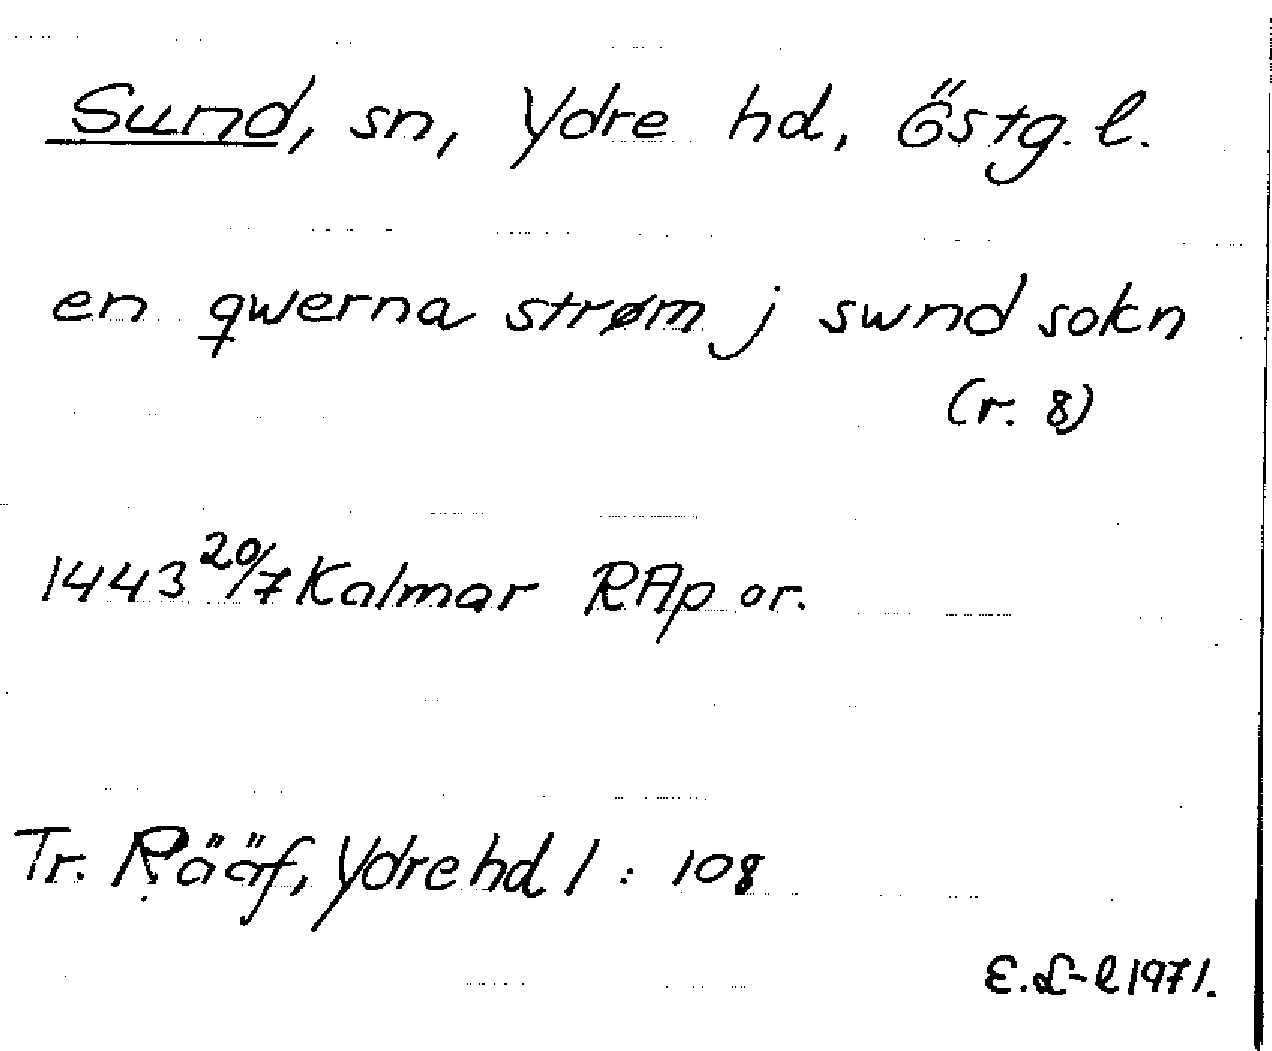 Sund, sn, Ydre hd, Östg. l.
en qwerna strøm j swnd sokn
(r. 8)
1443 20/7 Kalmar RAp or.
Tr. Rääf, Ydre hd 1 : 108
E.L-l 1971.